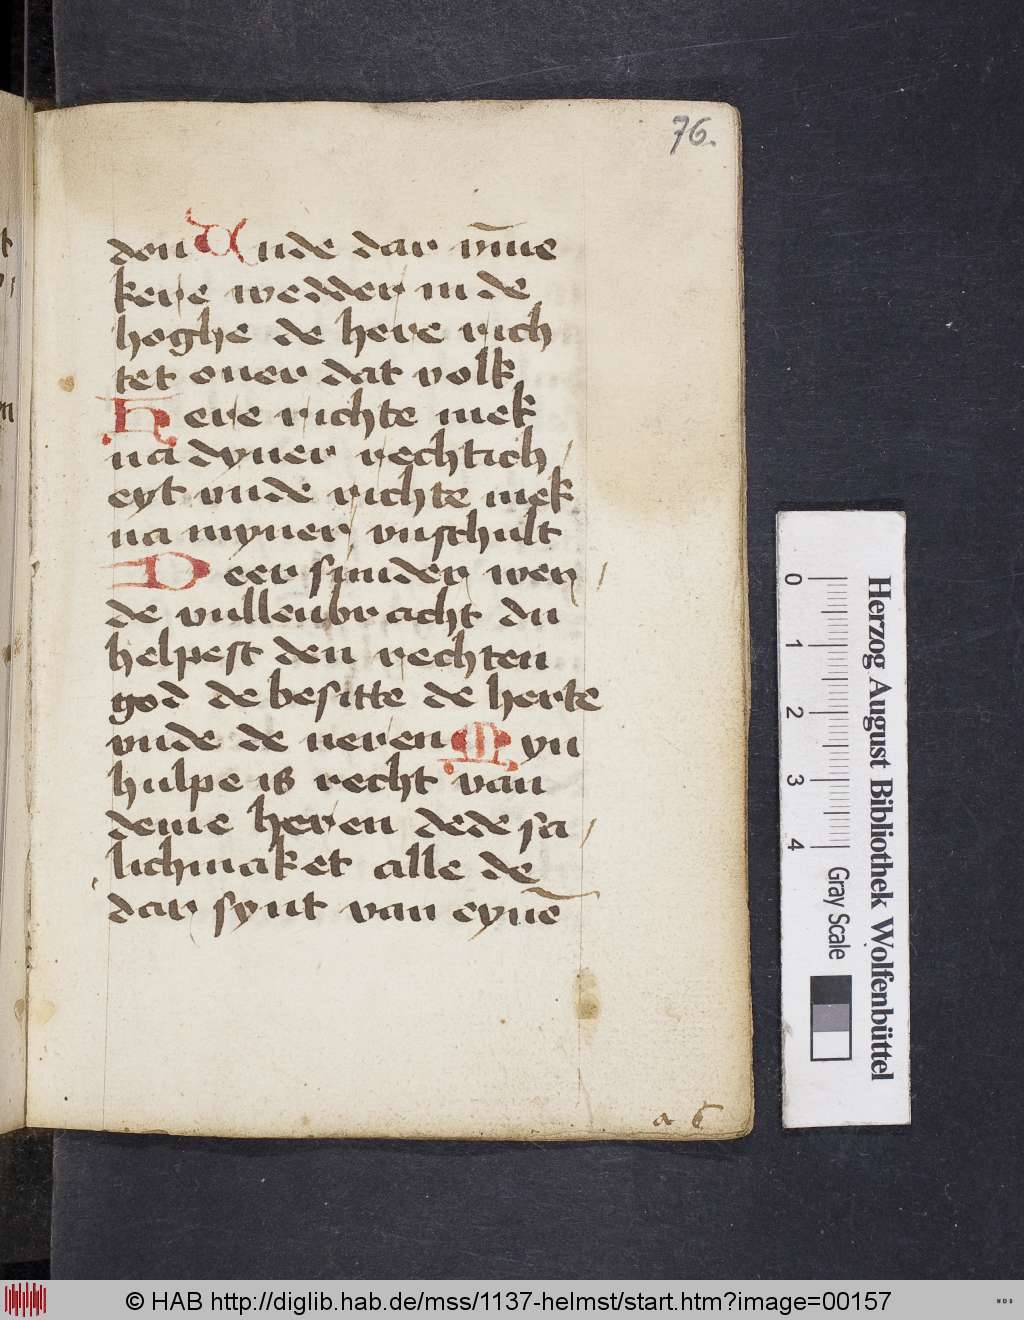 76.
den Vnde dar vm̄e
kere wedder in de
hoghe de here rich
tet ouer dat volk
Here richte mek
na dyner rechtich/
eyt vnde richte mek
na myner vnschult
Deer sunder wer/
de vullenbracht du
helpest den rechten
god de besitte de herte
vnde de neren Myn
hulpe is recht van
deme heren dede sa/
lichmaket alle de
dar synt van eynē
a 6
0 1 2 3 4
Herzog August Bibliothek Wolfenbüttel
Gray Scale
© HAB http://diglib.hab.de/mss/1137-helmst/start.htm?image=00157